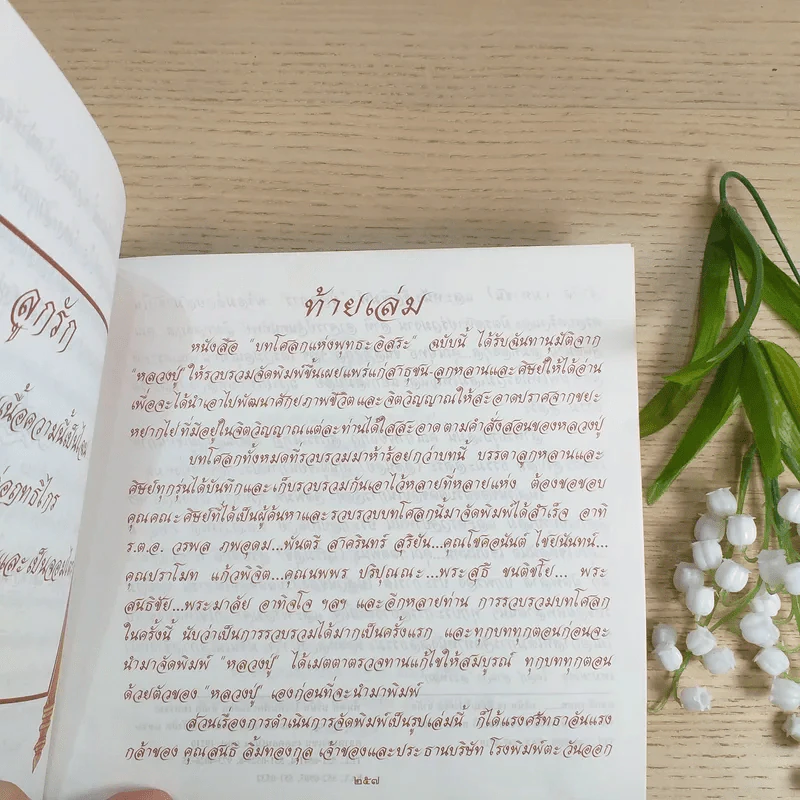 ลูกรัก
เนื้อความนี้เป็น
ฤทธิไกร
และเป็น
ท้ายเล่ม
หนังสือ "บทโศลกแห่งพุทธะอิสระ" ฉบับนี้ ได้รับฉันทานุมัติจาก
"หลวงปู่" ให้รวบรวมจัดพิมพ์ขึ้นเผยแพร่แก่สาธุชน-ลูกหลานและศิษย์ให้ได้อ่าน
เพื่อจะได้นำเอาไปพัฒนาศักยภาพชีวิตและจิตวิญญาณให้สะอาดปราศจากขยะ
หยากไย่ ที่มีอยู่ในจิตวิญญาณแต่ละท่านได้ใสสะอาด ตามคำสั่งสอนของหลวงปู่
บทโศลกทั้งหมดที่รวบรวมมาห้าร้อยกว่าบทนี้ บรรดาลูกหลานและ
ศิษย์ทุกรุ่นได้บันทึกและเก็บรวบรวมกันเอาไว้หลายที่หลายแห่ง ต้องขอขอบ
คุณคณะศิษย์ที่ได้เป็นผู้ค้นหาและรวบรวมบทโศลกนี้มาจัดพิมพ์ได้สำเร็จ อาทิ
ร.ต.อ. วรพล ภพอุดม...พันตรี สาครินทร์ สุริยัน...คุณโชคอนันต์ ไชยนันทน์...
คุณปราโมท แก้วพิจิต...คุณนพพร ปริปุณณะ...พระสุธี ชนติชโย... พระ
สนธิชัย...พระมาลัย อาทิจโจ ฯลฯ และอีกหลายท่าน การรวบรวมบทโศลก
ในครั้งนี้ นับว่าเป็นการรวบรวมได้มากเป็นครั้งแรก และทุกบททุกตอนก่อนจะ
นำมาจัดพิมพ์ "หลวงปู่" ได้เมตตาตรวจทานแก้ไขให้สมบูรณ์ ทุกบททุกตอน
ด้วยตัวของ "หลวงปู่" เองก่อนที่จะนำมาพิมพ์
ส่วนเรื่องการดำเนินการจัดพิมพ์เป็นรูปเล่มนี้ ก็ได้แรงศรัทธาอันแรง
กล้าของ คุณสนธิ ลิ้มทองกุล เจ้าของและประธานบริษัท โรงพิมพ์ตะวันออก
๒๕๗